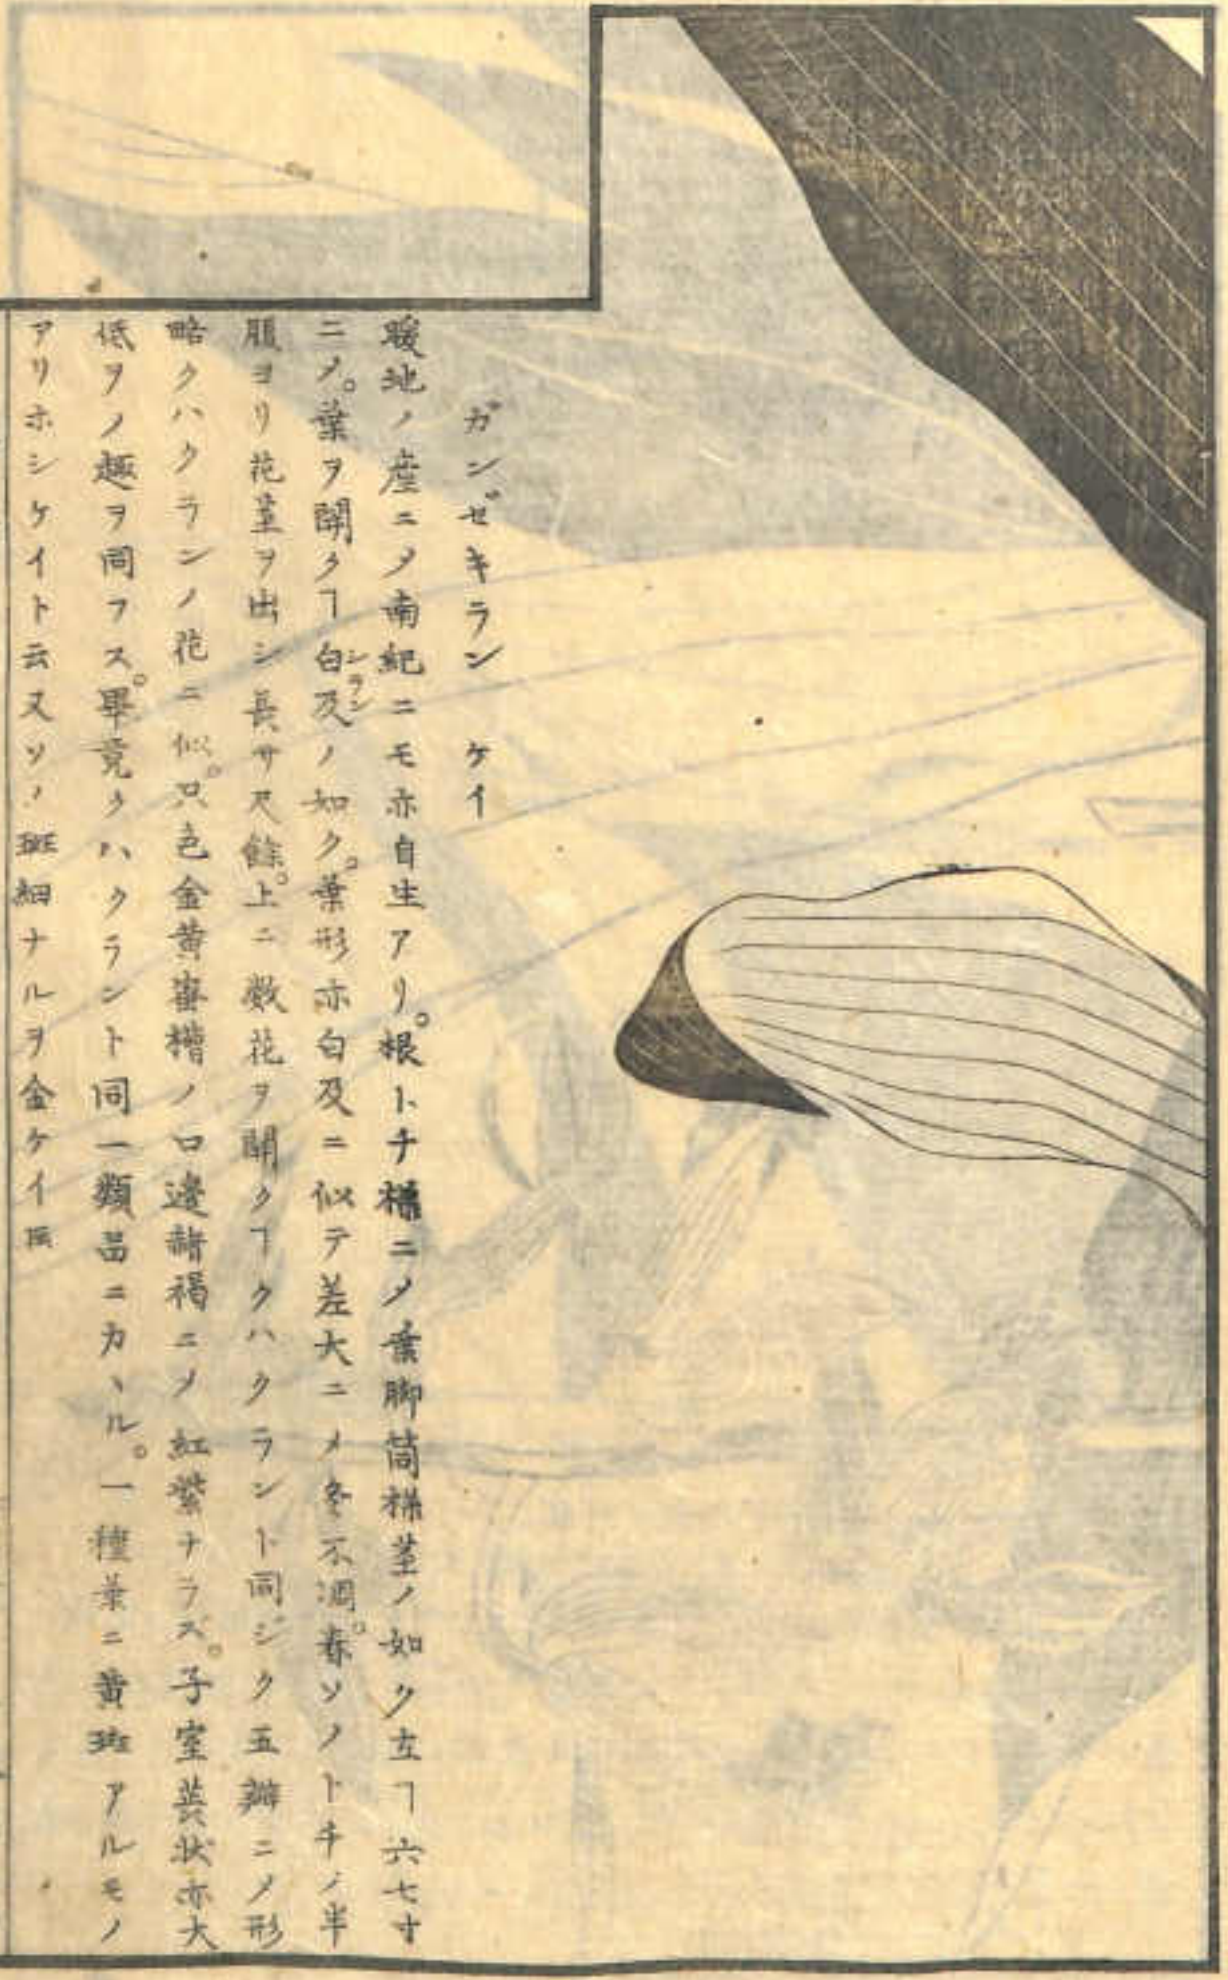 ガンゼキラン ケイ
暖地ノ産ニ〆南紀ニモ亦自生アリ。根トチ様ニ〆葉脚筒様茎ノ如ク立ヿ六七寸
ニ〆。葉ヲ開クヿ白及シランノ如ク。葉形亦白及ニ似テ差大ニ〆冬不凋。春ソノトチノ半
腹ヨリ花茎ヲ出シ長サ尺餘。上ニ數花ヲ開クヿクハクラント同ジク五瓣ニ〆形
略クハクランノ花ニ似。只色金黄 ノ口邊赭褐ニ〆紅紫ナラズ。子室 状亦大
低ソノ趣ヲ同フス。畢竟クハクラント同一類 ニカヽル。一種葉ニ黄斑アルモノ
アリホシケイト云又ソノ斑細ナルヲ金ケイ